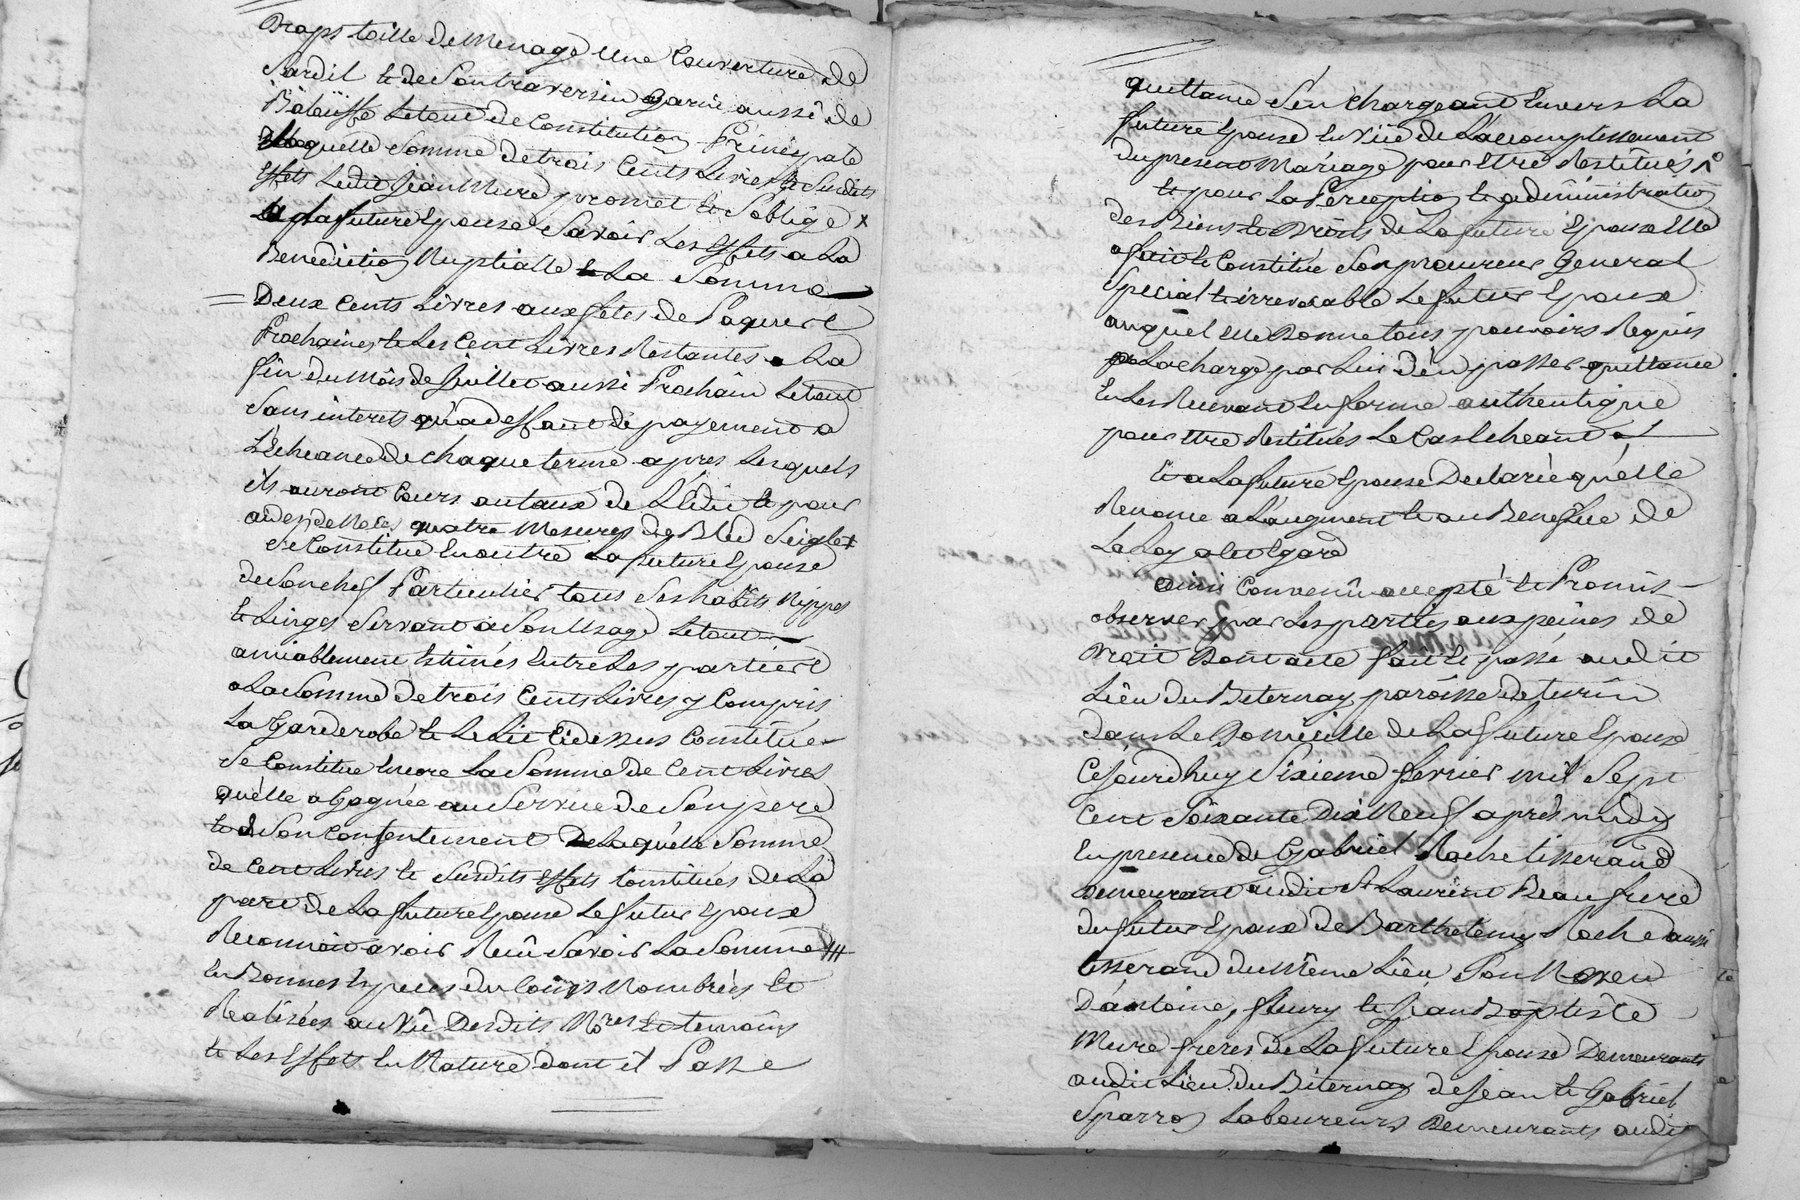 Draps toille de Menage une Couverture de
Sardil et de Son traversin garni aussi de
Baleuffe Letout de Constitution Principale
Laquelle Somme de trois Cents Livres et Susdits
Effets Ledit Jean Mure promet et S'oblige x
a La future Epouse Savoir Les Effets a La
Benediction Nuptialle et La Somme
Deux Cents Livres aux fetes de Paques
Prochaines et Les Cent Livres Restantes a La
fin du Mois de Juillet aussi Prochain Letout
Sans interets qu'a deffaut de payement a
L'Echeance de Chaque terme apres Lesquels
ils auront Cours au taux de L'Edit et pour
aider de Noces quatre Mesures de Bled Seigle
Se Constitue En outre La future Epouse
de Son chef Particulier tous Ses habits Nippes
et Linges Servant a Son Usage Letout
amiablement Estimés Entre Les parties
a La Somme de trois Cents Livres y Compris
La Garderobe et Le Lit Cidessus Constitué
Se Constitue Encore La Somme de Cent Livres
qu'elle a Gagnée au Service de Son pere
et de Son Consentement De Laquelle Somme
de Cent Livres et Susdits Effets Constitués de La
part de La future Epouse Le futur Epoux
Reconnoit avoir Reçû Savoir La Somme
En Bonnes Especes du Cours Nombrées et
Realisées au Vû Desdits N.res et temoins
et Les Effets En Nature dont il Passe
quittance S'en Chargeant Envers La
future Epouse En Vüe de L'accomplissement
du present Mariage pour Etre Restitués
et pour La Perception et administration
des Biens et Droits de La future Epouse Elle
a fait et Constitué Son procureur General
Special et irrevocable Le futur Epoux
auquel Elle Donne tous pouvoirs Requis
a La charge par Lui d'en passer quittance
En Les Recevant En forme authentique
pour Etre Restitués Le Cas Echeant
Et a La future Epouse Declaré qu'elle
Renonce a L'augment et au Benefice de
La Loy a cet Egard
ainsi Convenû accepté et Promis
observer par Les parties aux peines de
Droit Dont acte fait et passé audit
Lieu du Biternay paroisse de turin
dans Le Domicille de La future Epouse
Cejourdhuy Sixieme fevrier mil Sept
Cent Soixante Dix Neuf apres midy
En presence de Gabriel Roche tisserand
Demeurant audit St Laurent Beaufrere
du futur Epoux de Barthelemy Roche aussi
tisserand du Même Lieu Son Neveu
D'antoine, fleury et Jean Baptiste
Mure freres de La future Epouse Demeurants
audit Lieu du Biternay de Jean et Gabriel
Sparron Laboureurs Demeurants audit